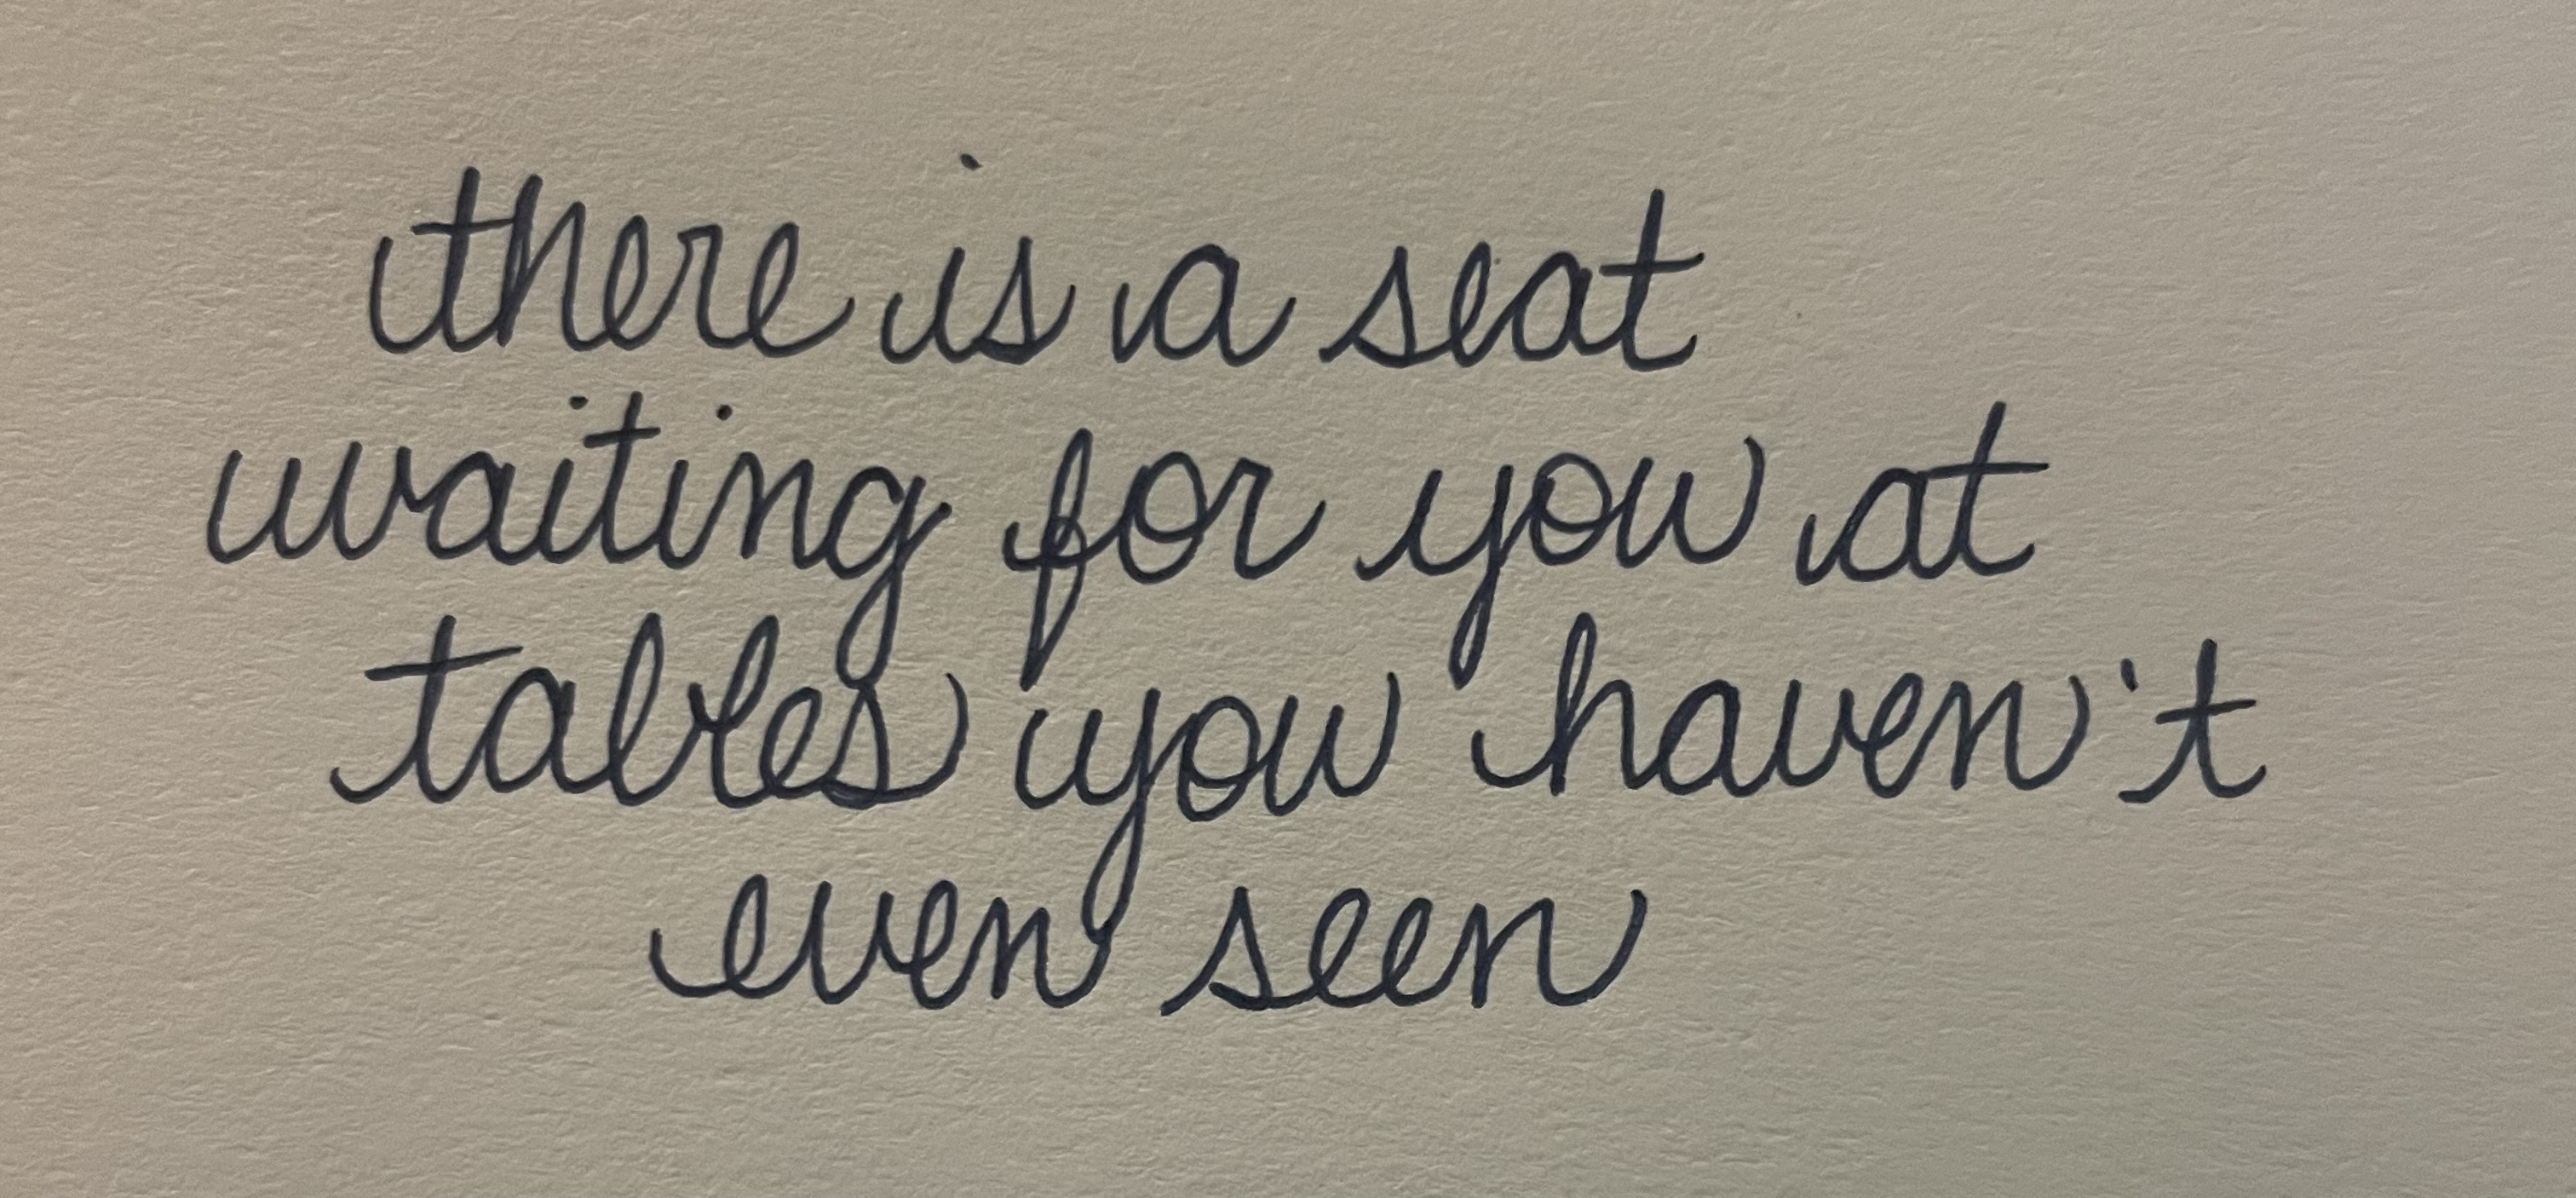 there is a seat
waiting for you at
tables you haven't
even seen